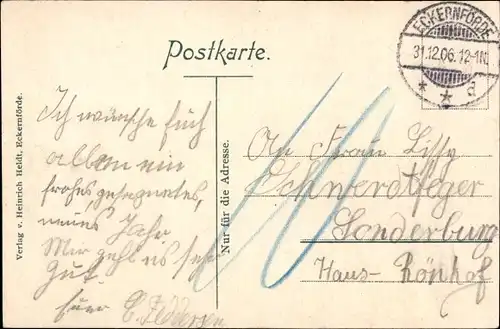 ECKERNFÖRDE
31.12.06.12-1N.
* * a
Postkarte.
Verlag v. Heinrich Heldt, Eckernförde.
Nur für die Adresse.
Ich wünsche Euch
allen ein
frohes gesegnetes
neues Jahr.
Mir geht es sehr
Gut.
E. Feddersen
An Frau Lissy
Schwerdtfeger
Sonderburg
Haus- Rönhof